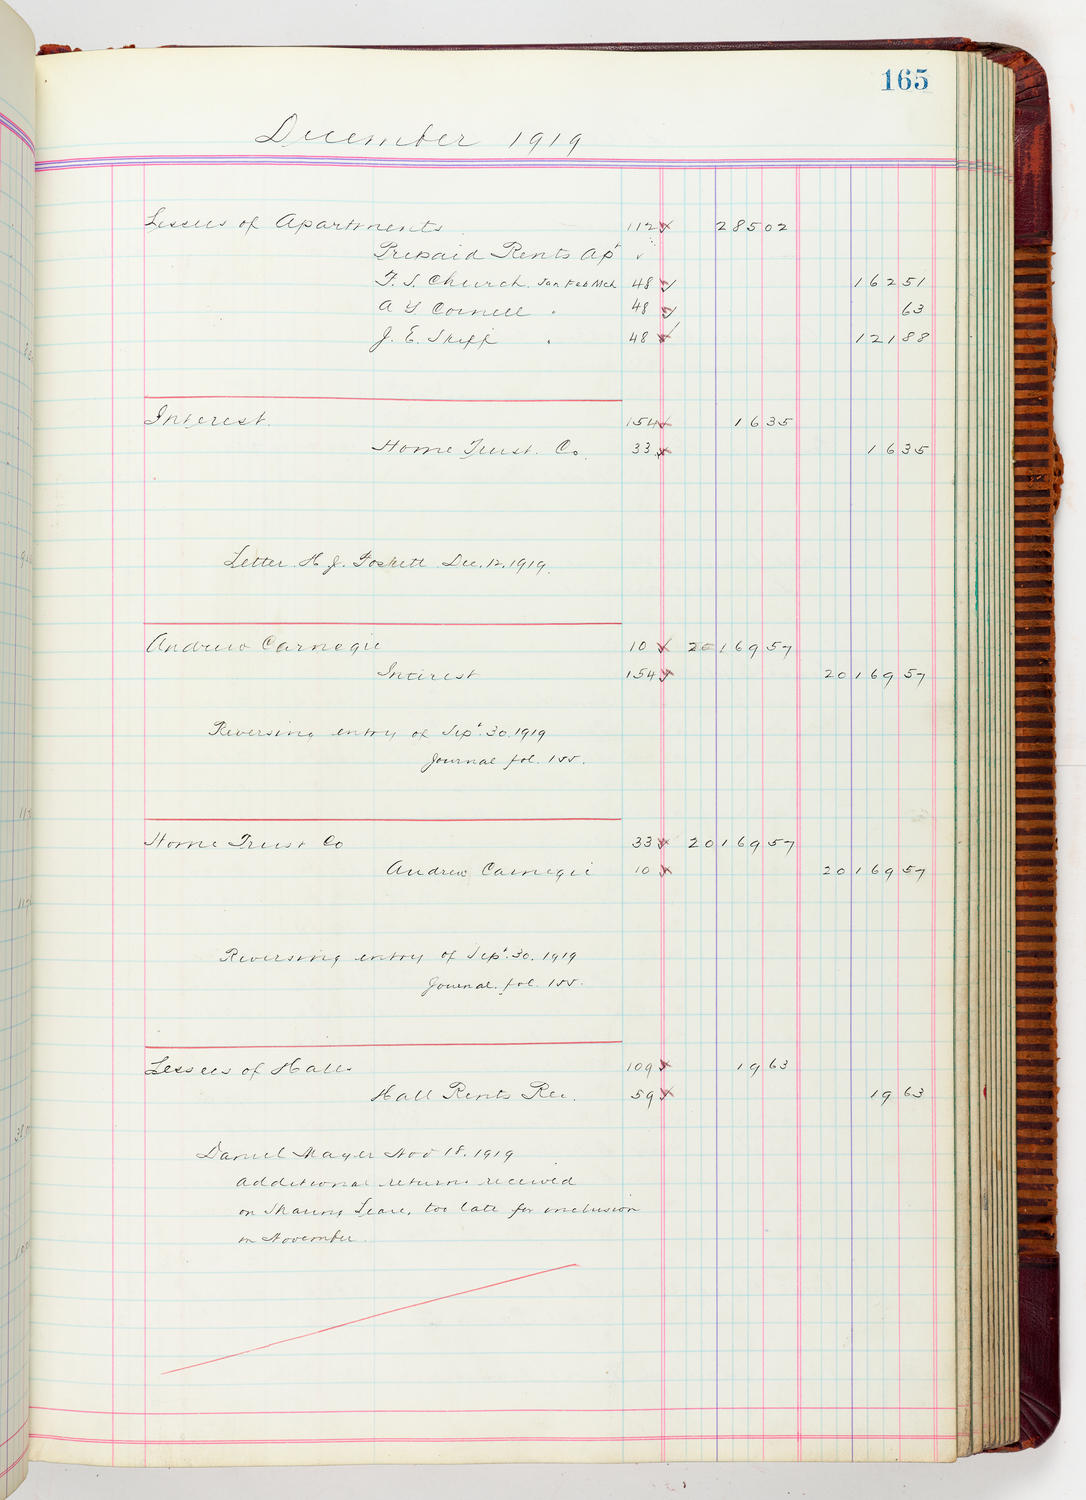 165
December 1919
Lessees of Apartments 112 285 02
Prepaid Rents Apt
F. S. Church. Jan Feb Mch 48 162 51
A Y Cornell " 48 63
J. E. " 48 121 88
Interest. 154 16 35
Home Trust. Co. 33 16 35
Letter H J. Foskett Dec. 12, 1919.
Andrew Carnegie 10 20169 57
Interest 154 20169 57
Reversing entry of Sept. 30. 1919
Journal fol. 155.
Home Trust Co 33 20169 57
Andrew Carnegie 10 20169 57
Reversing entry of Sept. 30. 1919
Journal. fol. 155.
Lessees of Hall 109 19 63
Hall Rents Rec. 59 19 63
Daniel Mayer Nov 18. 1919
Additional returns received
on Sharing Lease, too late for inclusion
in November.